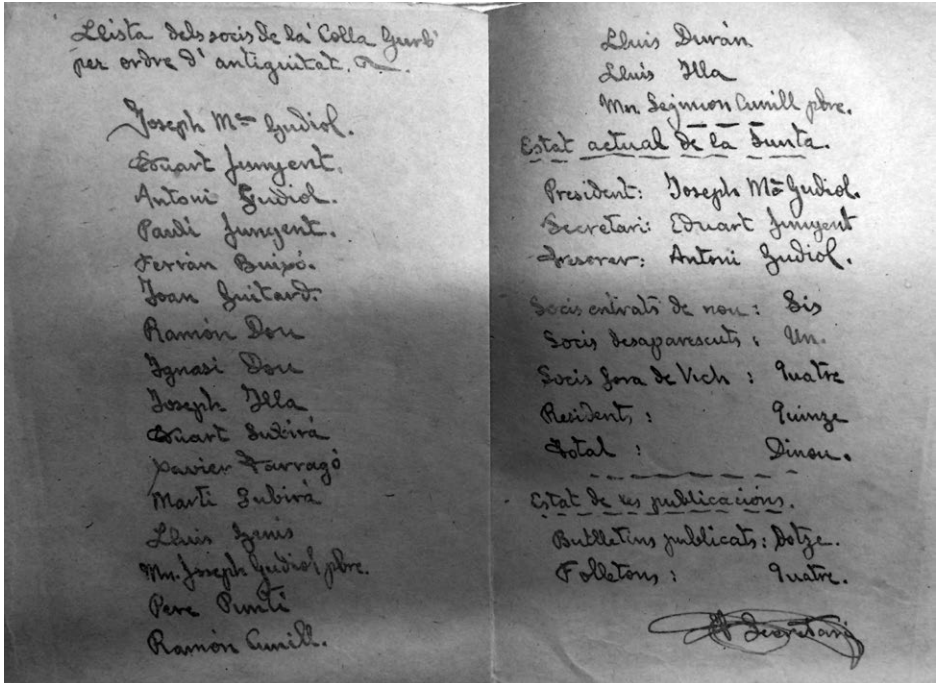 Llista dels socis de la 'Colla Gurb'
per ordre d'antiguitat.
Joseph Mª Gudiol.
Eduart Junyent.
Antoni Gudiol.
Paulí Junyent.
Ferràn Buixó.
Joan Guitard.
Ramón Dou
Ignasi Dou
Joseph Illa
Eduart Subirà
Xavier Farragó
Martí Subirà
Lluis Genis
Mn. Joseph Gudiol, pbre.
Pere Puntí
Ramón Cunill.
Lluis Durán
Lluis Illa
Mn. Segimon Cunill pbre.
Estat actual de la Junta.
President: Joseph Mª Gudiol.
Secretari: Eduart Junyent
Tresorer: Antoni Gudiol.
Socis entrats de nou: Sis
Socis desaparescuts: Un.
Socis fora de Vich: Quatre
Residents: Quinze
Total: Dinou.
Estat de les publicacións.
Butlletins publicats: Dotze.
Folletons: Quatre.
Secretari